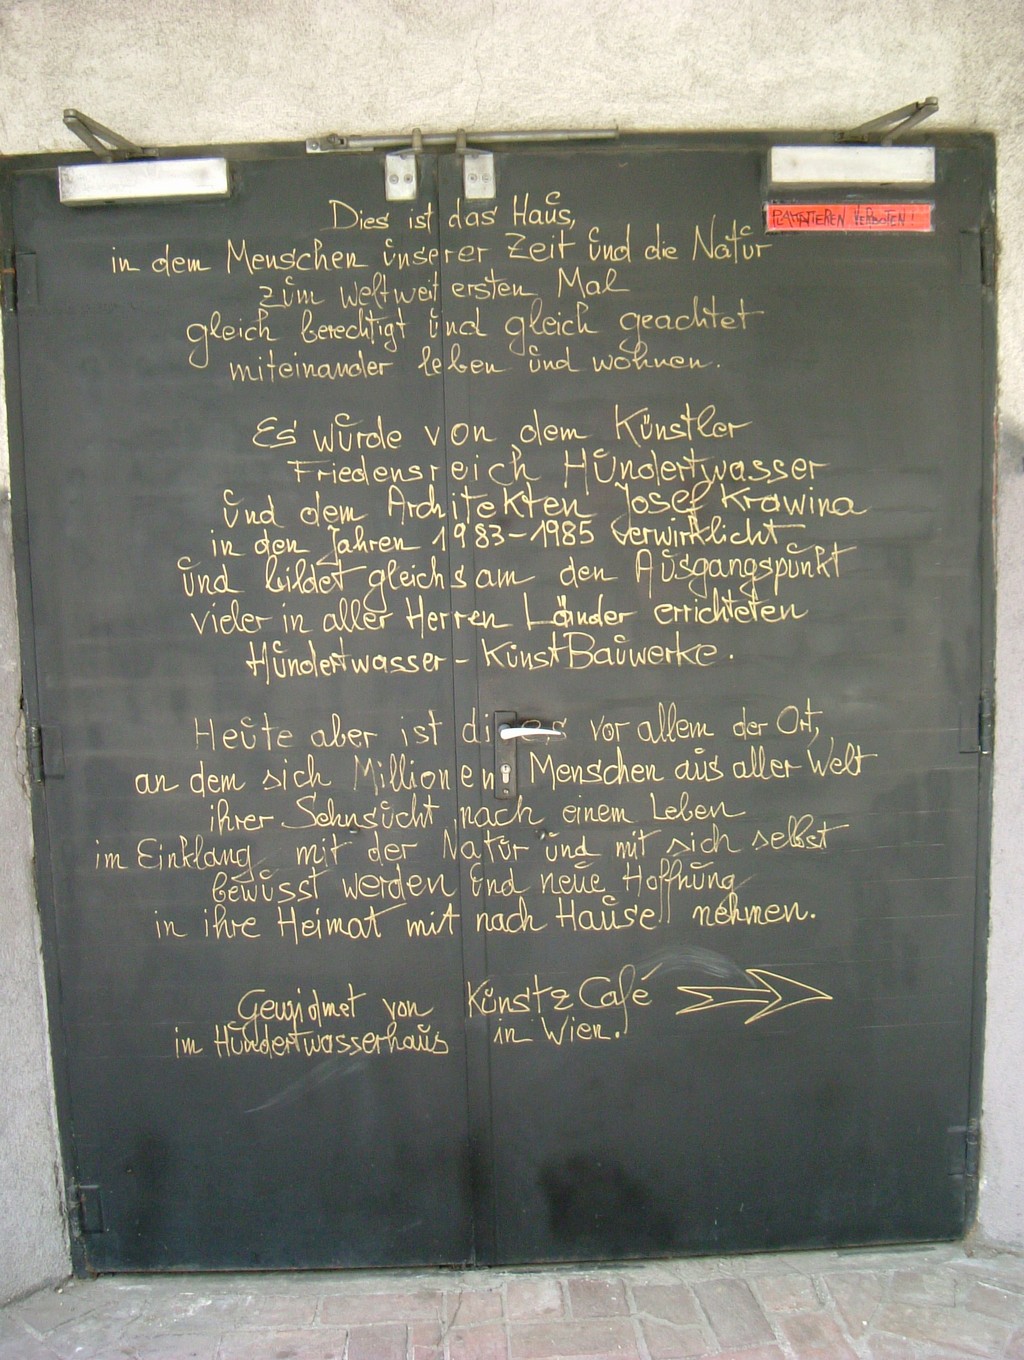 Dies ist das Haus,
PLAKATIEREN VERBOTEN!
in dem Menschen unserer Zeit und die Natur
zum weltweit ersten Mal
gleich berechtigt und gleich geachtet
miteinander leben und wohnen.
Es wurde von dem Künstler
Friedensreich Hundertwasser
und dem Architekten Josef Krawina
in den Jahren 1983-1985 verwirklicht
und bildet gleichsam den Ausgangspunkt
vieler in aller Herren Länder errichteten
Hundertwasser - KunstBauwerke.
Heute aber ist dieses vor allem der Ort,
an dem sich Millionen Menschen aus aller Welt
ihrer Sehnsucht nach einem Leben
im Einklang mit der Natur und mit sich selbst
bewusst werden und neue Hoffnung
in ihre Heimat mit nach Hause nehmen.
Gewidmet von Kunst & Café
im Hundertwasserhaus in Wien.